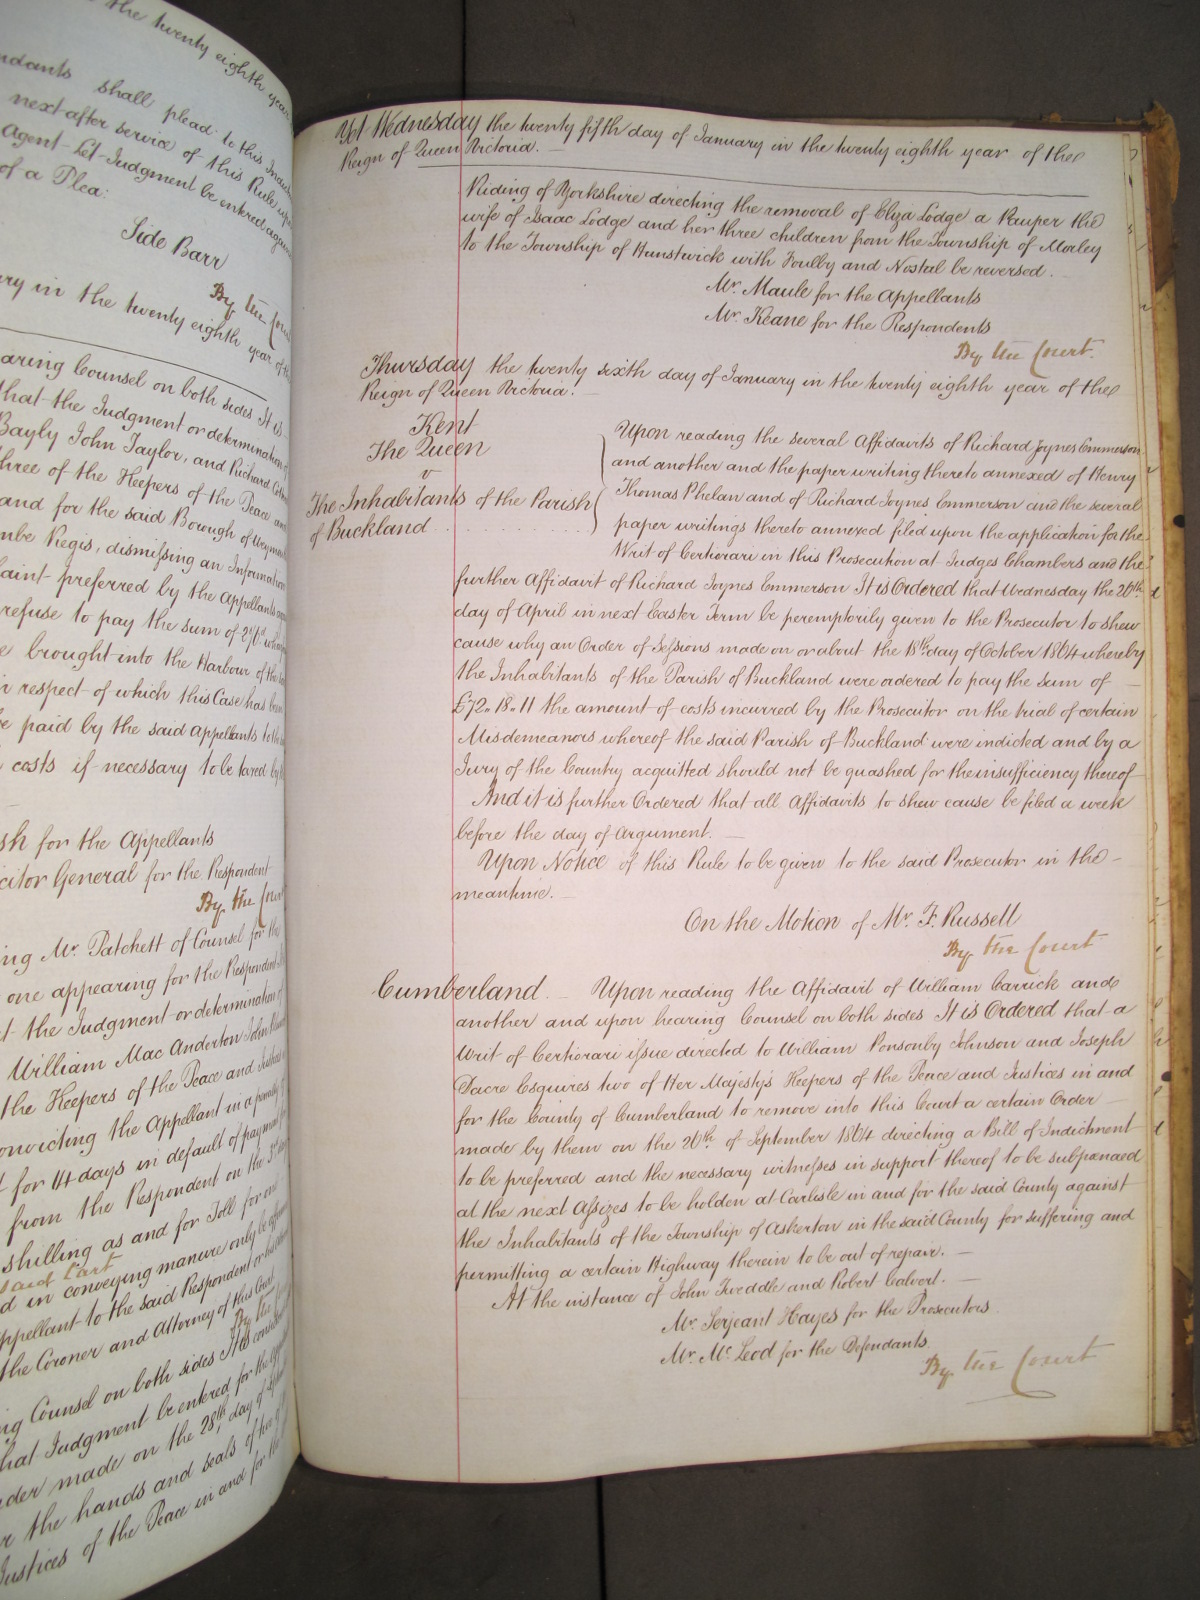 the twenty eighth year
shall plead to this
next after service of this Rule upon
Agent Let Judgment be entered
of a Plea:
Side Barr
By the Court
in the twenty eighth year of the
Counsel on both sides It is
that the Judgment or determination
Bayly John Taylor, and Richard
three of the Keepers of the Peace and
and for the said Borough of
Regis, dismissing an Information
preferred by the Appellants
refuse to pay the sum of
brought into the Harbour of the
in respect of which this Case has been
be paid by the said Appellants to the
costs if necessary to be taxed by
for the Appellants
General for the Respondent
By the Court
Mr. Patchett of Counsel for the
one appearing for the Respondent
the Judgment or determination of
William Mac Anderton John
the Keepers of the Peace and Justices
convicting the Appellant in a penalty
for 14 days in default of payment
from the Respondent on the 3rd
shilling as and for Toll for one
said Cart
in conveying manure only be
Appellant to the said Respondent or
the Coroner and Attorney of this Court
By the
Counsel on both sides It is
that Judgment be entered for the
made on the 28th day of
the hands and seals of two of
Justices of the Peace in and for the
Yet Wednesday the twenty fifth day of January in the twenty eighth year of the
Reign of Queen Victoria. —
Riding of Yorkshire directing the removal of Eliza Lodge a Pauper the
wife of Isaac Lodge and her three children from the Township of Morley
to the Township of Hunstwick with Foulby and Nostal be reversed. —
Mr. Maule for the Appellants
Mr. Keane for the Respondents
By the Court.
Thursday the twenty sixth day of January in the twenty eighth year of the
Reign of Queen Victoria. —
Kent
The Queen
v
The Inhabitants of the Parish
of Buckland
Upon reading the several Affidavits of Richard Joynes Emmerson
and another and the paper writing thereto annexed of Henry
Thomas Phelan and of Richard Joynes Emmerson and the several
paper writings thereto annexed filed upon the application for the
Writ of Certiorari in this Prosecution at Judges Chambers and the
further Affidavit of Richard Joynes Emmerson It is Ordered that Wednesday the 26th
day of April in next Easter Term be peremptorily given to the Prosecutor to shew
cause why an Order of Sessions made on or about the 18th day of October 1864 whereby
the Inhabitants of the Parish of Buckland were ordered to pay the sum of —
£72. 18. 11 the amount of costs incurred by the Prosecutor on the trial of certain
Misdemeanors whereof the said Parish of Buckland were indicted and by a
Jury of the Country acquitted should not be quashed for the insufficiency thereof
And it is further Ordered that all Affidavits to shew cause be filed a week
before the day of Argument. —
Upon Notice of this Rule to be given to the said Prosecutor in the —
meantime. —
On the Motion of Mr. F. Russell
By the Court
Cumberland. — Upon reading the Affidavit of William Carrick and
another and upon hearing Counsel on both sides It is Ordered that a
Writ of Certiorari issue directed to William Ponsonby Johnson and Joseph
Dacre Esquires two of Her Majesty's Keepers of the Peace and Justices in and
for the County of Cumberland to remove into this Court a certain Order —
made by them on the 26th of September 1864 directing a Bill of Indictment
to be preferred and the necessary witnesses in support thereof to be subpœnaed
at the next Assizes to be holden at Carlisle in and for the said County against
the Inhabitants of the Township of Askerton in the said County for suffering and
permitting a certain Highway therein to be out of repair. —
At the instance of John Tweddle and Robert Calvert. —
Mr. Serjeant Hayes for the Prosecutors
Mr. Mc. Leod for the Defendants.
By the Court